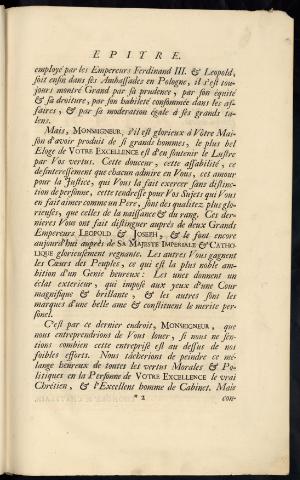 EPITRE.
employé par les Empereurs Ferdinand III. & Leopold,
soit enfin dans ses Ambassades en Pologne, il s'est tou-
jours montré Grand par sa prudence, par son équité
& sa droiture, par son habileté consommée dans les af-
faires, & par sa moderation égale à ses grands ta-
lens.
Mais, MONSEIGNEUR, s'il est glorieux à Vôtre Mai-
son d'avoir produit de si grands hommes, le plus bel
Eloge de VOTRE EXCELLENCE est d'en soutenir le Lustre
par Vos vertus. Cette douceur, cette affabilité, ce
desinteressement que chacun admire en Vous, cet amour
pour la Justice, qui Vous la fait exercer sans distinc-
tion de personne, cette tendresse pour Vos Sujets qui Vous
en fait aimer comme un Pere, sont des qualitez plus glo-
rieuses, que celles de la naissance & du rang. Ces der-
nieres Vous ont fait distinguer auprès de deux Grands
Empereurs LEOPOLD & JOSEPH, & le font encore
aujourd'hui auprès de SA MAJESTE IMPERIALE & CATHO-
LIQUE glorieusement regnante. Les autres Vous gagnent
les Cœurs des Peuples, ce qui est la plus noble am-
bition d'un Genie heureux: Les unes donnent un
éclat exterieur, qui impose aux yeux d'une Cour
magnifique & brillante, & les autres sont les
marques d'une belle ame & constituent le merite per-
sonnel.
C'est par ce dernier endroit, MONSEIGNEUR, que
nous entreprendrions de Vous louer, si nous ne sen-
tions combien cette entreprise est au dessus de nos
foibles efforts. Nous tâcherions de peindre ce mé-
lange heureux de toutes les vertus Morales & Po-
litiques en la Personne de VOTRE EXCELLENCE le vrai
Chrétien, & l'Excellent homme de Cabinet. Mais
* 2 con-